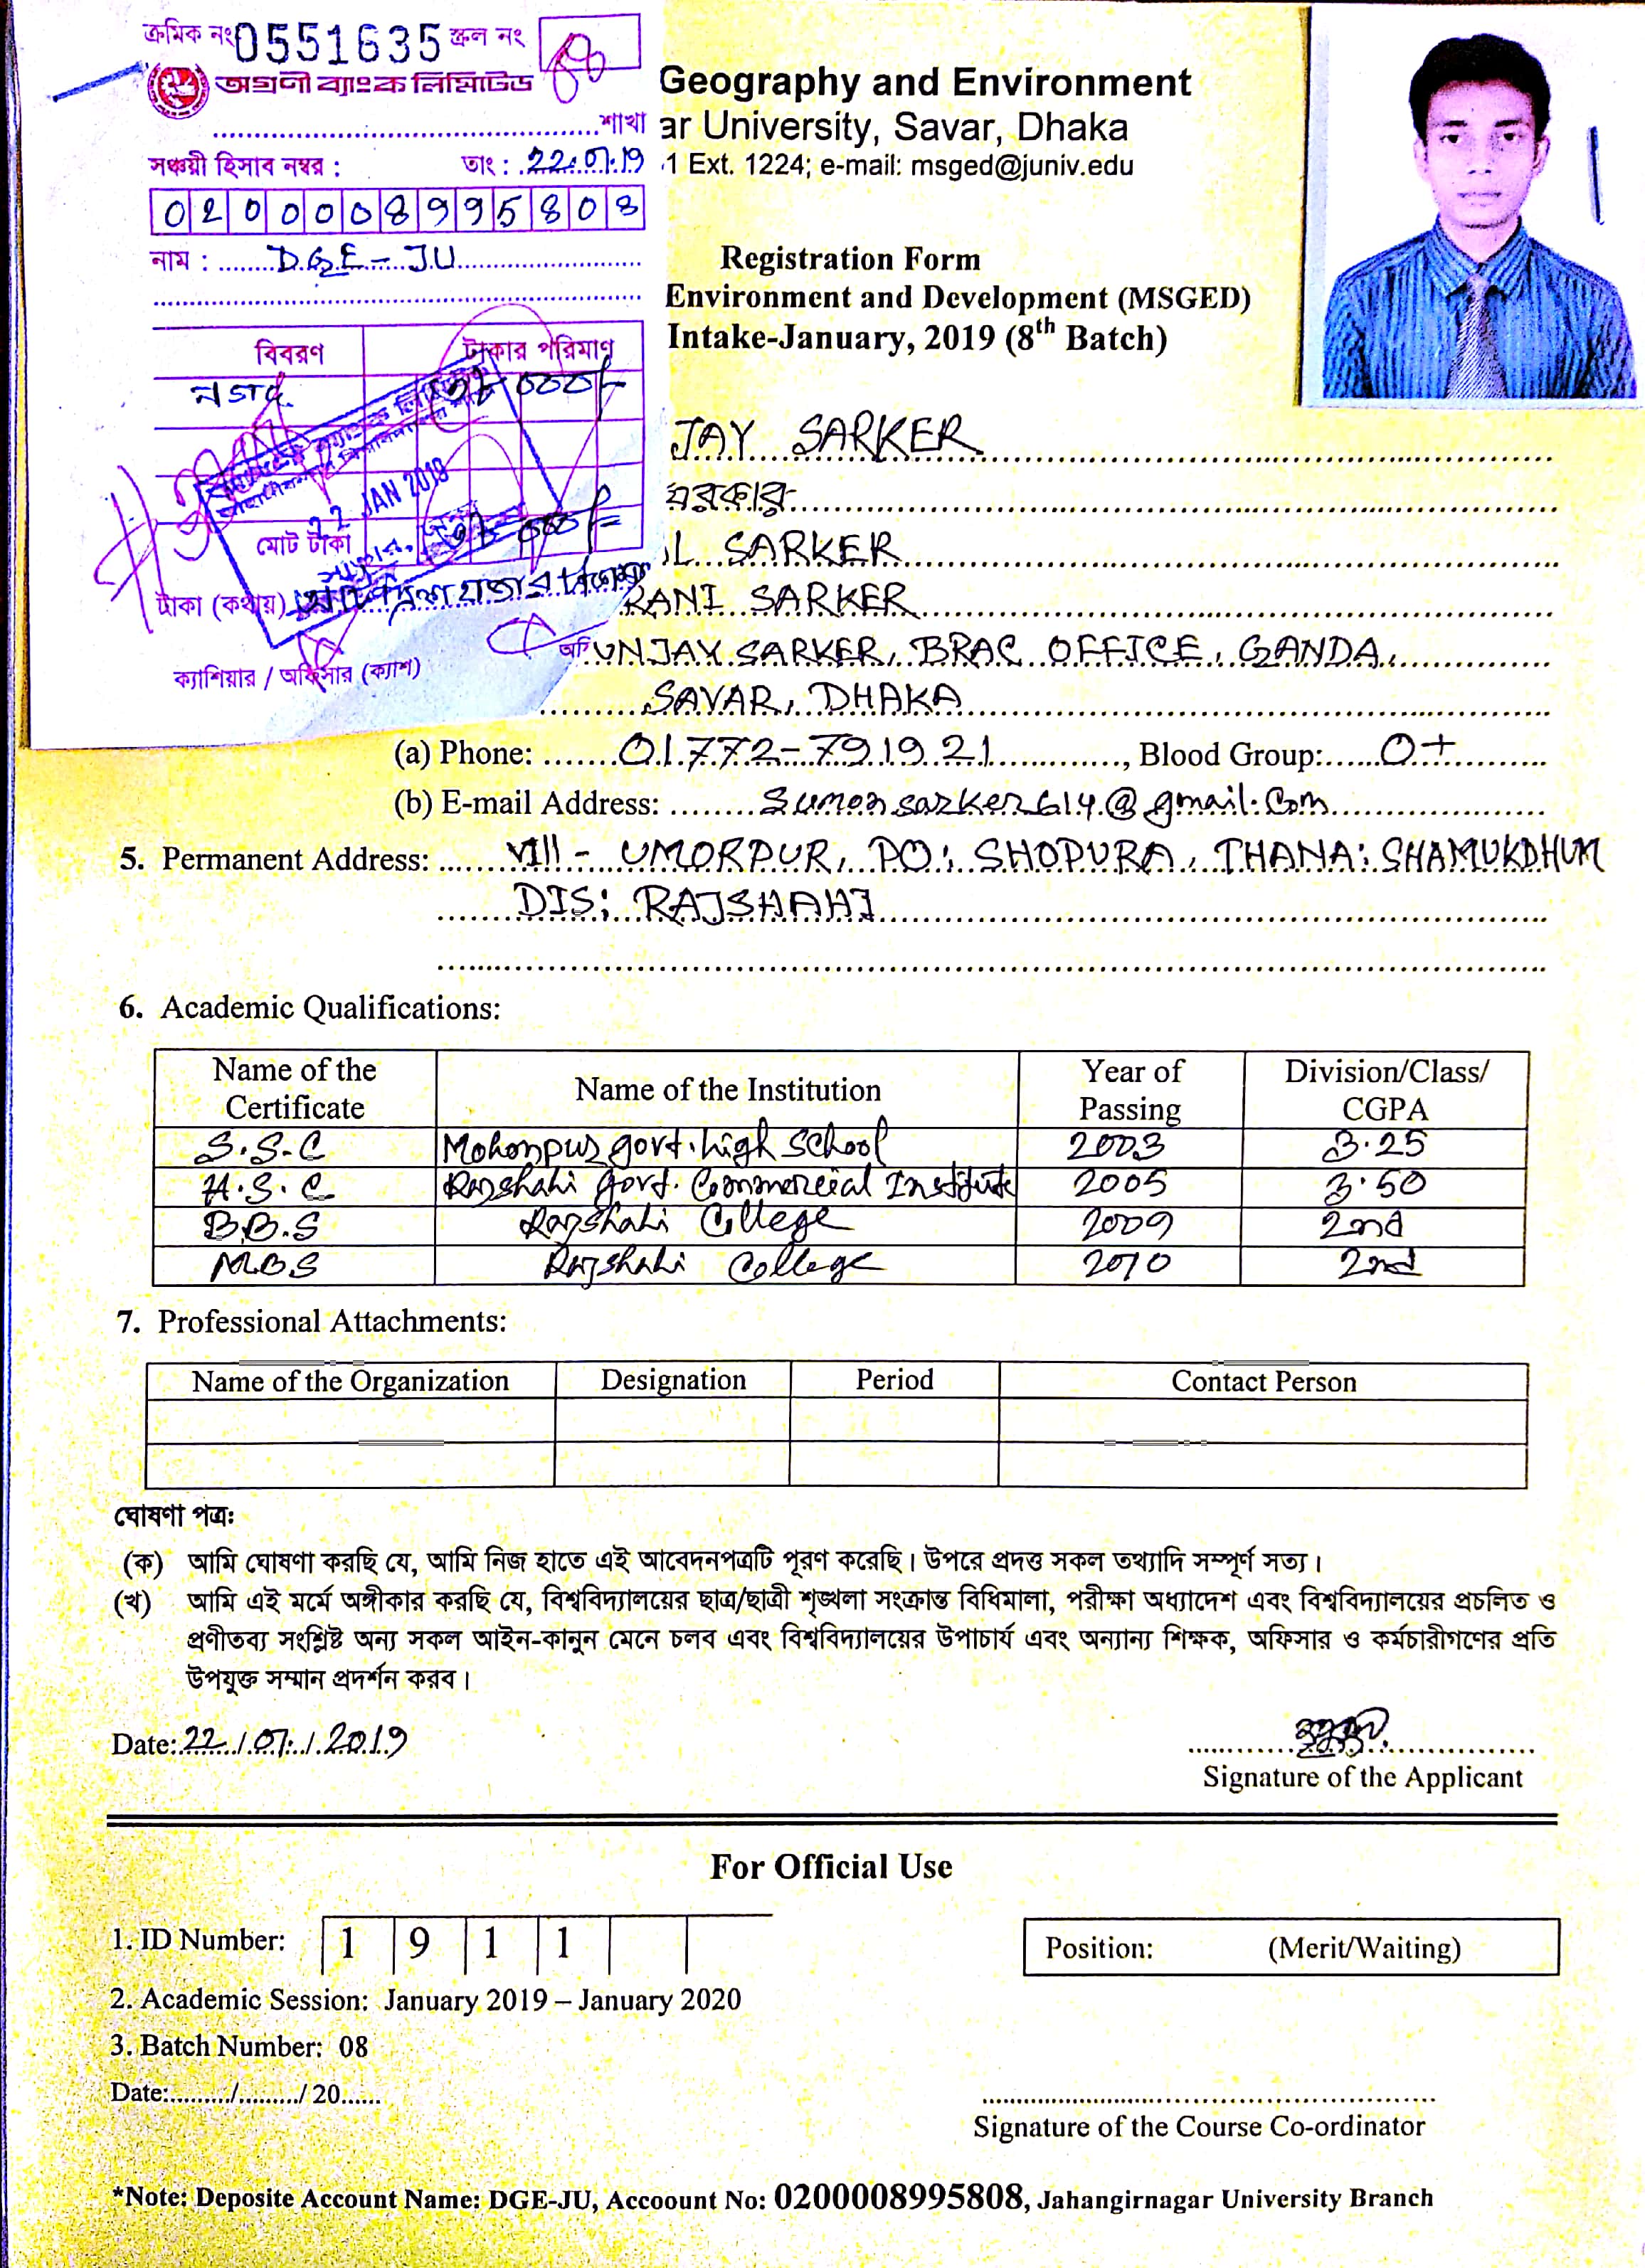 ক্রমিক নং 0551635 স্ক্রল নং
অগ্রণী ব্যাংক লিমিটেড
শাখা
সঞ্চয়ী হিসাব নম্বর : তাং : 22.01.19
0200008995808
নাম : DGE-JU
বিবরণ টাকার পরিমাণ
নগদ
22 JAN 2019
মোট টাকা
টাকা (কথায়)
ক্যাশিয়ার / অফিসার (ক্যাশ)
Geography and Environment
ar University, Savar, Dhaka
1 Ext. 1224; e-mail: msged@juniv.edu
Registration Form
Environment and Development (MSGED)
Intake-January, 2019 (8th Batch)
JAY SARKER
সরকার
L SARKER
RANI SARKER
UNJAY SARKER, BRAC OFFICE, GANDA,
SAVAR, DHAKA
(a) Phone: 01772-791921, Blood Group: O+
(b) E-mail Address: Sumonsarker614@gmail.com
5. Permanent Address: VIll - UMORPUR, PO: SHOPURA, THANA: SHAMUKDHUM
DIS: RAJSHAHI
6. Academic Qualifications:
Name of the Certificate Name of the Institution Year of Passing Division/Class/CGPA
S.S.C Mohonpur govt. high School 2003 3.25
H.S.C Rajshahi govt. Commercial Institute 2005 3.50
B.B.S Rajshahi College 2009 2nd
MBS Rajshahi College 2010 2nd
7. Professional Attachments:
Name of the Organization Designation Period Contact Person
ঘোষণা পত্র:
(ক) আমি ঘোষণা করছি যে, আমি নিজ হাতে এই আবেদনপত্রটি পূরণ করেছি। উপরে প্রদত্ত সকল তথ্যাদি সম্পূর্ণ সত্য।
(খ) আমি এই মর্মে অঙ্গীকার করছি যে, বিশ্ববিদ্যালয়ের ছাত্র/ছাত্রী শৃঙ্খলা সংক্রান্ত বিধিমালা, পরীক্ষা অধ্যাদেশ এবং বিশ্ববিদ্যালয়ের প্রচলিত ও
প্রণীতব্য সংশ্লিষ্ট অন্য সকল আইন-কানুন মেনে চলব এবং বিশ্ববিদ্যালয়ের উপাচার্য এবং অন্যান্য শিক্ষক, অফিসার ও কর্মচারীগণের প্রতি
উপযুক্ত সম্মান প্রদর্শন করব।
Date: 22/01/2019
Signature of the Applicant
For Official Use
1. ID Number: 1 9 1 1
Position: (Merit/Waiting)
2. Academic Session: January 2019 – January 2020
3. Batch Number: 08
Date:........./........./ 20......
Signature of the Course Co-ordinator
*Note: Deposite Account Name: DGE-JU, Accoount No: 0200008995808, Jahangirnagar University Branch